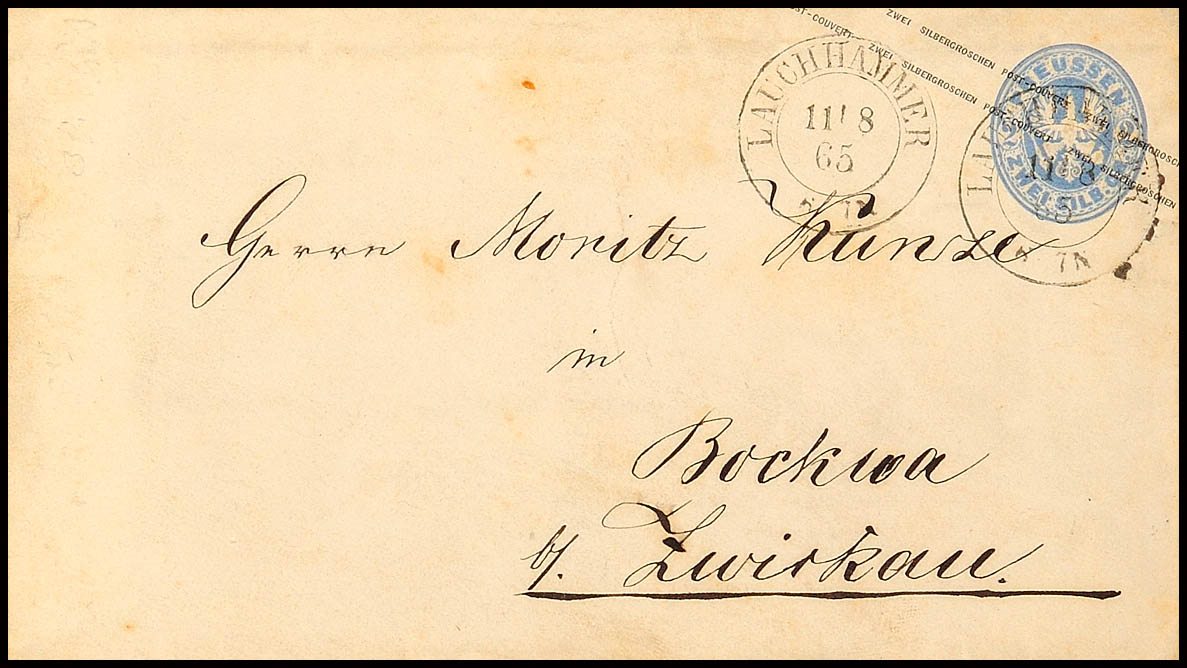 ZWEI SILBERGROSCHEN POST-COUVERT ZWEI SILBERGROSCHEN
POST-COUVERT ZWEI SILBERGROSCHEN POST-COUVERT ZWEI SILBERGROSCHEN
PREUSSEN
ZWEI SILB. GR.
LAUCHHAMMER
11 8
65
7N
11 8
65
7N
Herrn Moritz Kunze
in
Bockwa
b/. Zwickau.